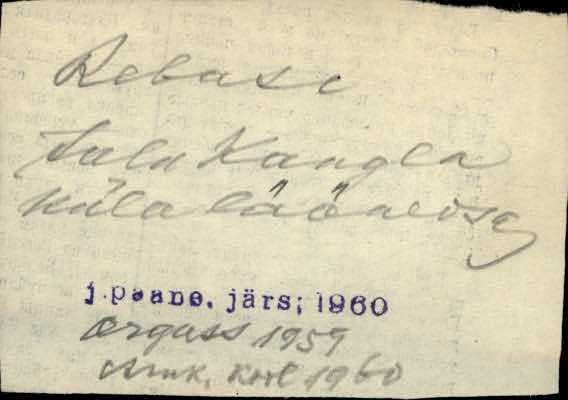 Rebase
talu Kangla
küla lääneosa
j.paane. järs; 1960
Orguss 1959
kort 1960